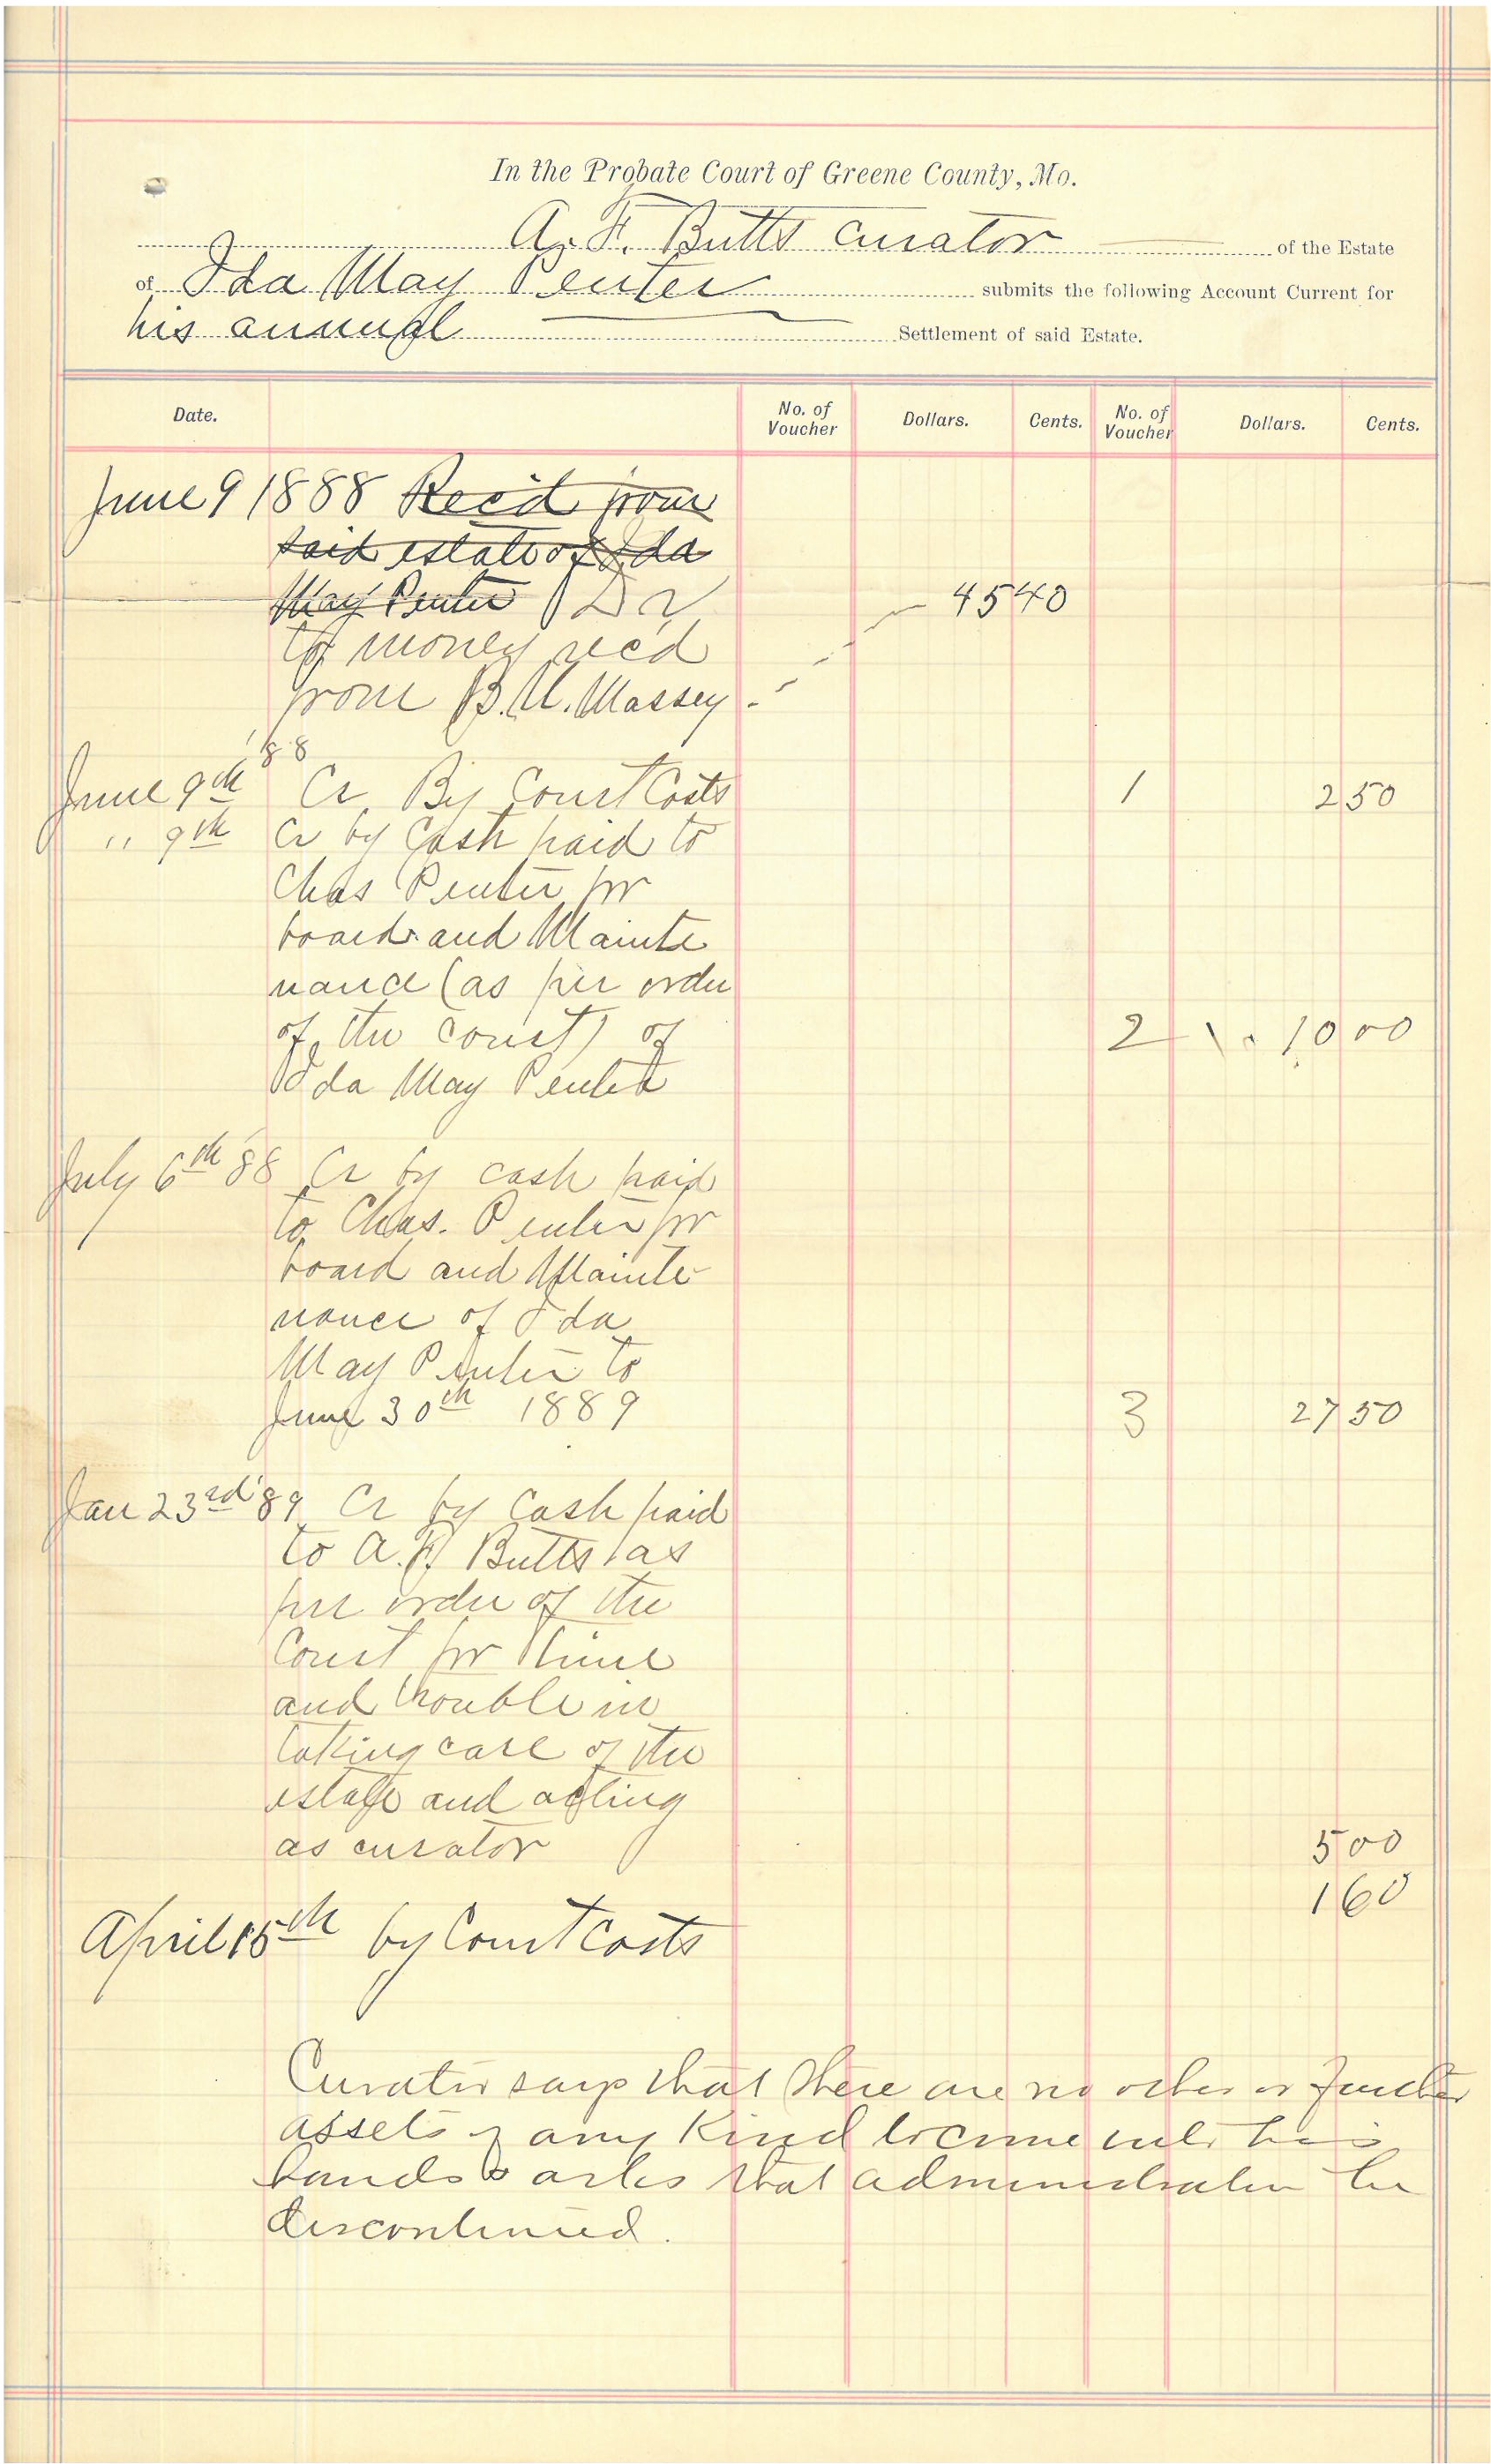 In the Probate Court of Greene County, Mo.
A. F. Butts curator of the Estate
of Ida May Penter submits the following Account Current for
his annual Settlement of said Estate.
Date. No. of Voucher Dollars. Cents. No. of Voucher Dollars. Cents.
June 9 1888 Recd from
said estate of Ida
May Penter Dr 45 40
to money recd
from B. U. Massey
'88
June 9th Cr By Court Costs 1 2 50
" 9th Cr by Cash paid to
Chas Penter for
board and Mainte
nance (as per order
of the court) of 2 10 00
Ida May Penter
July 6th 88 Cr by cash paid
to Chas. Penter for
board and Mainte
nance of Ida
May Penter to
June 30th 1889 3 27 50
Jan 23rd '89 Cr by Cash paid
to A. F. Butts as
per order of the
Court for time
and trouble in
taking care of the
estate and acting
as curator 5 00
1 60
April 15th by Court Costs
Curator says that there are no other or further
assets of any kind to come into his
hands & asks that administration be
discontinued.